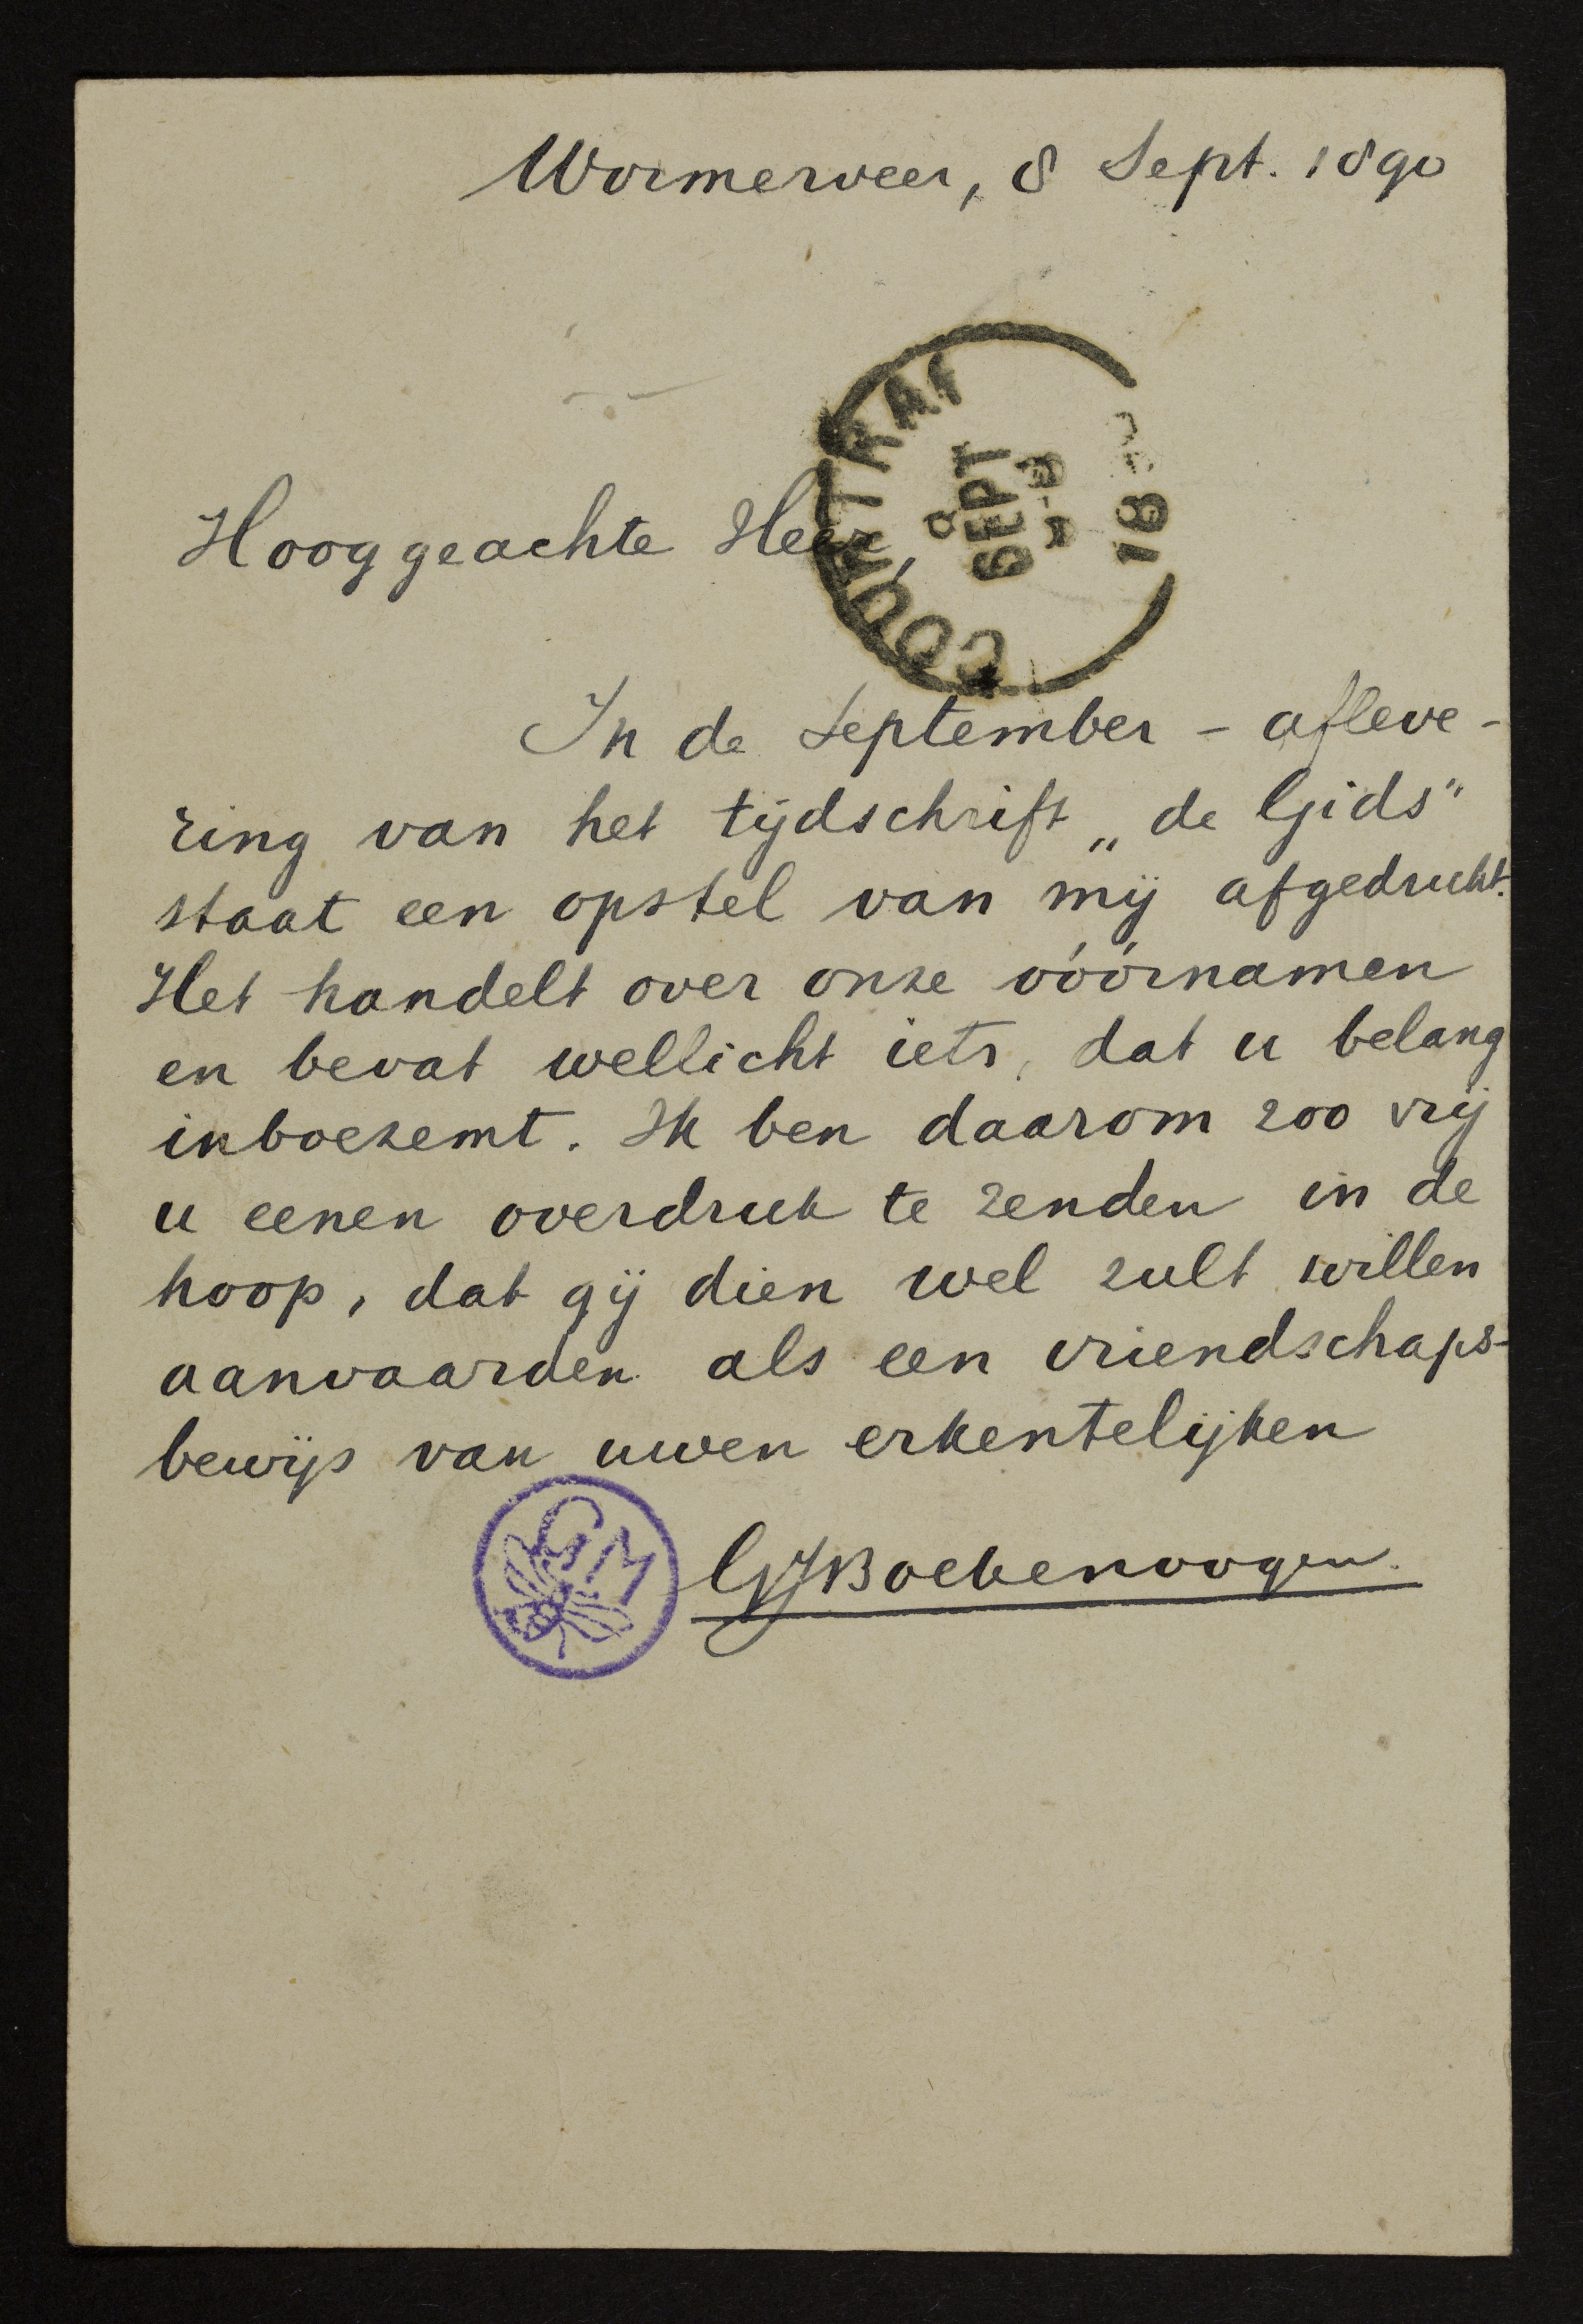 Wormerveer, 8 Sept. 1890
COURTRAI
9
SEPT
18
Hooggeachte Heer,
In de September - afleve-
ring van het tijdschrift „de Gids"
staat een opstel van mij afgedrukt.
Het handelt over onze vóórnamen
en bevat wellicht iets, dat u belang
inboezemt. Ik ben daarom zoo vrij
u eenen overdruk te zenden in de
hoop, dat gij dien wel zult willen
aanvaarden als een vriendschaps-
bewijs van uwen erkentelijken
GM
GJBoekenoogen.